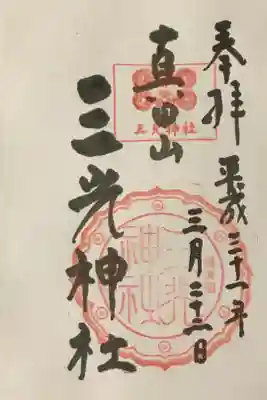 奉拝
平成三十一年
三月三十一日
真田山
三光神社
三光神社